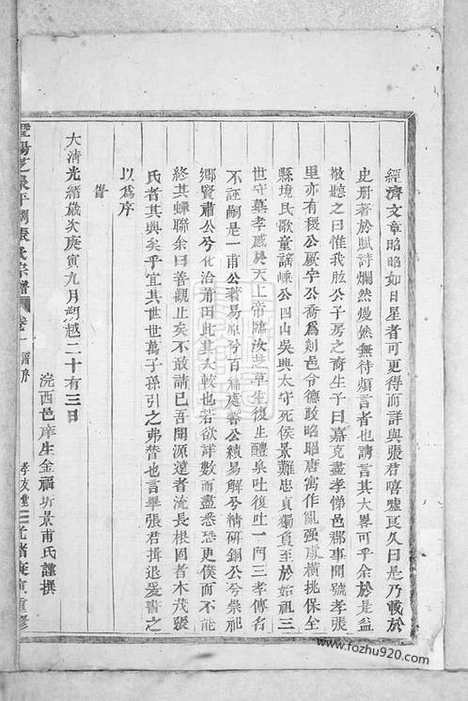 經濟文章昭昭如日星者可更得而詳與張君嘻噓良久曰是乃載於
史册著於賦詩爛然燦然無待煩言者也請言其大畧可乎余於是益
敬聽之曰惟我肱公子房之裔生子曰嘉克盡孝悌邑郡事聞號孝張
里亦有稷公厥字公喬爲剡邑令德敺昭昭唐寓作亂强敵橫挑保全
縣境民歌童謠嵊公四山吳興太守死侯景難忠貞獨負至於始祖三
世守墓孝感昊天上帝臨汝芝草生復生醴泉吐復吐一門三孝傳名
不誣嗣是一甫公著易原兮百福延馨公續易解兮精研錮公兮崇祀
鄉賢肅公兮化治莆田此其大較也若欲詳數而盡悉恐更僕而不能
終其蟬聯余曰善觀止矣不敢請已吾聞源遠者流長根固者木茂張
氏者其興矣乎宜其世世萬子孫引之弗替也言畢張君揖退爰書之
以爲序
旹
大清光緒歲次庚寅九月朔越二十有三日
浣西邑庠生金福坊景甫氏謹撰
暨陽芝泉平闊張氏宗譜
卷一
序
孝友堂
光緒庚寅重修
www.fozhu920.com